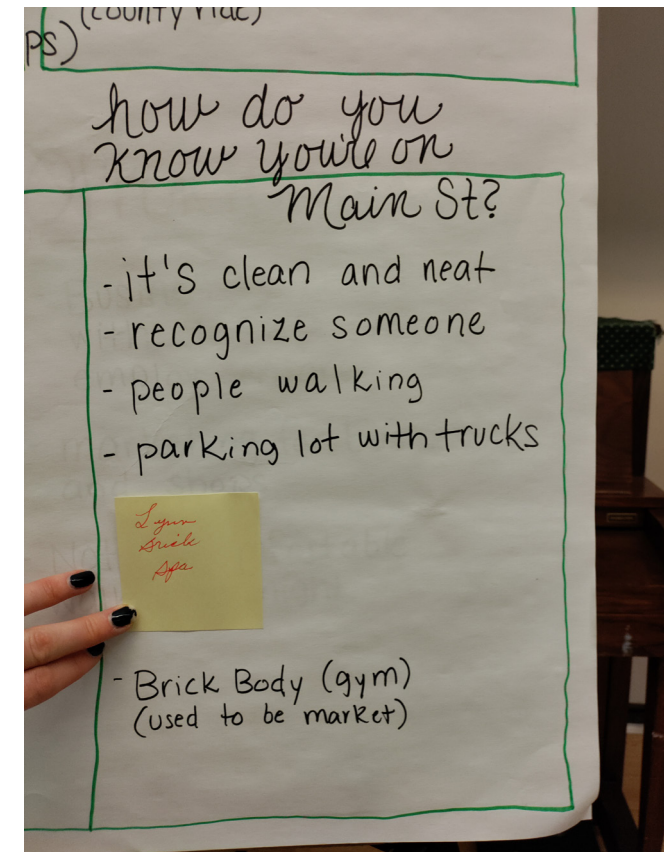 (county
ps)
how do you
know you're on
Main St?
- it's clean and neat
- recognize someone
- people walking
- parking lot with trucks
Lynn
Brick
Spa
- Brick Body (gym)
(used to be market)